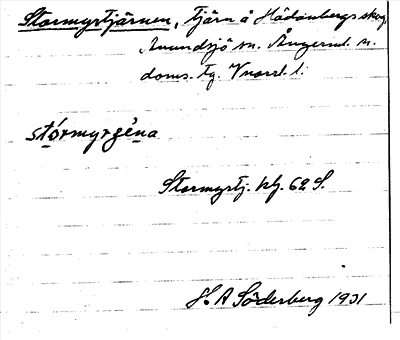 Stormyrtjärnen, tjärn å Hädanbergs skog,
Anundsjö sn. Ångerml. n.
doms. tg. Vnorrl. l.
stórmyrʒéna
Stormyrtj. blj. 62 S.
H. A Söderberg 1931